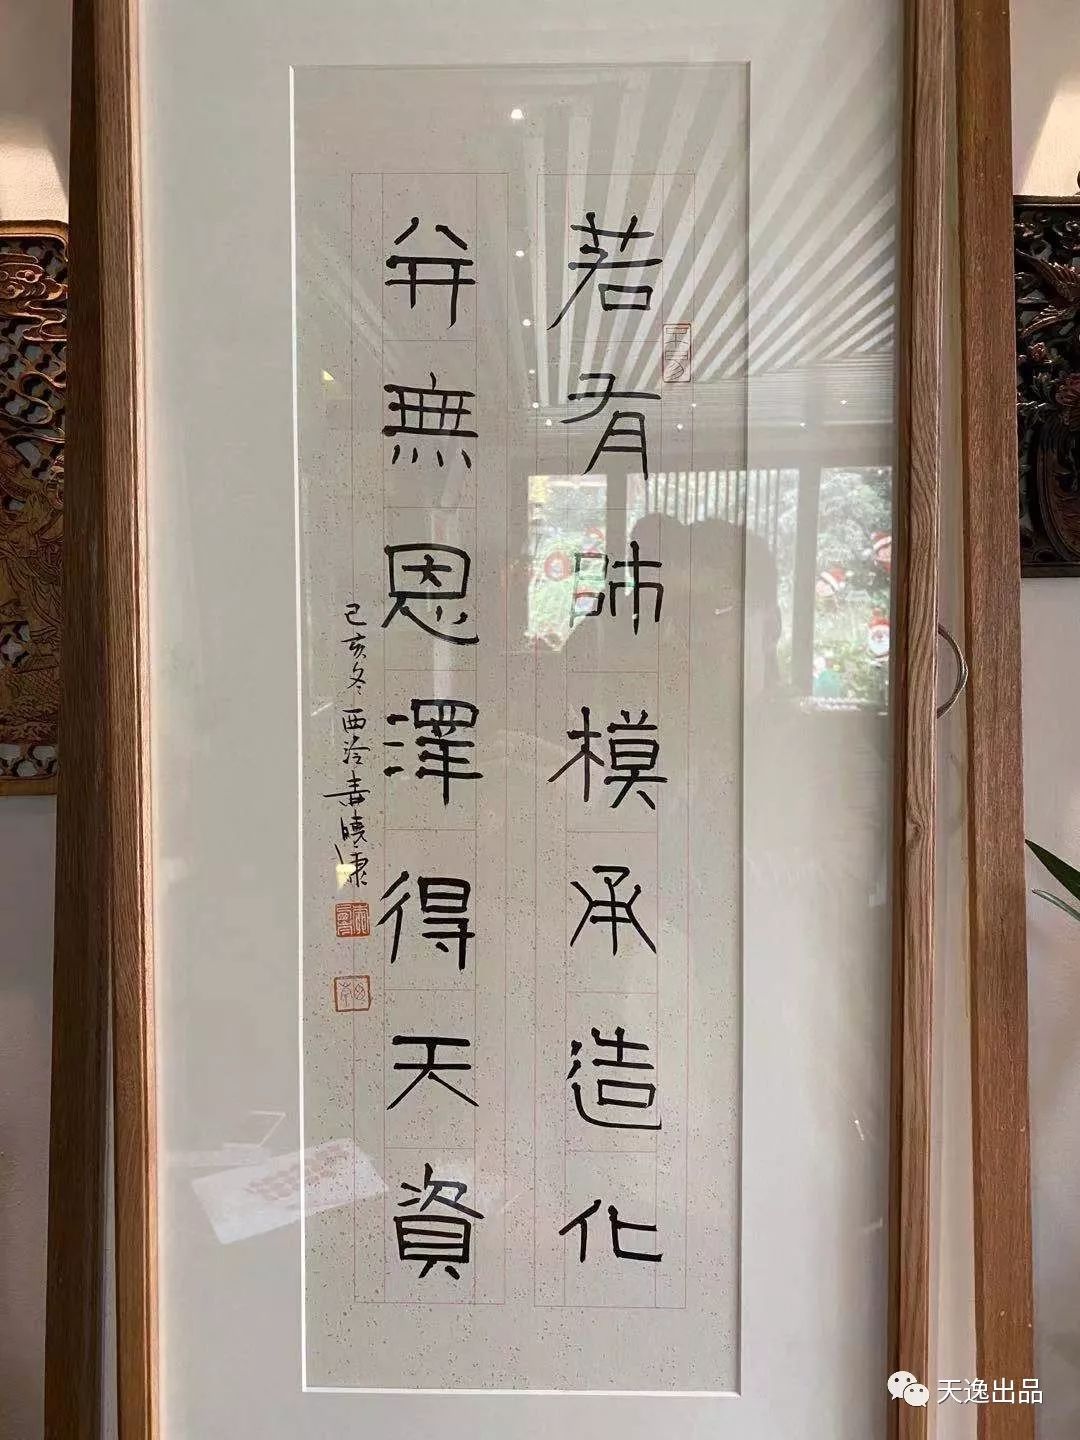 若有師模承造化
并無恩澤得天資
己亥冬西泠袁曉康
天逸出品